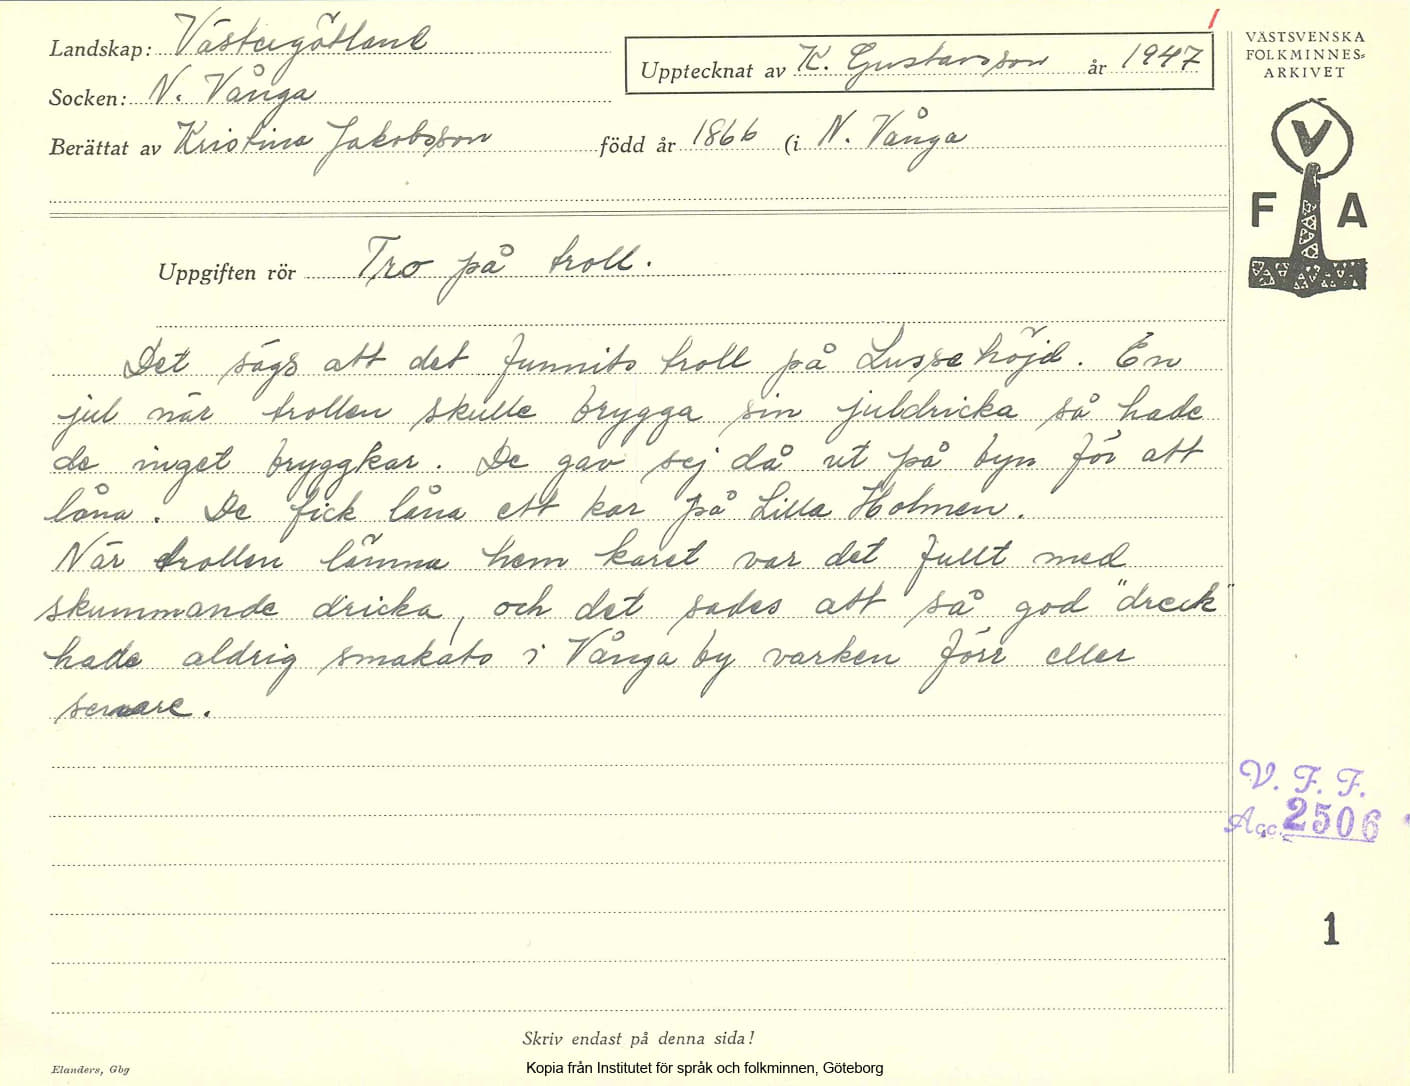 Landskap: Västergötland
Upptecknat av K. Gustavsson år 1947
Socken: N. Vånga
Berättat av Kristina Jakobsson född år 1866 (i N. Vånga
Uppgiften rör Tro på troll.
Det sägs att det funnits troll på Lussehöjd. En
jul när trollen skulle brygga sin juldricka så hade
de inget bryggkar. De gav sej då ut på byn för att
låna. De fick låna ett kar på Lilla Holmen.
När trollen lämna hem karet var det fullt med
skummande dricka, och det sades att så god "dreck"
hade aldrig smakats i Vånga by varken förr eller
senare.
Skriv endast på denna sida!
Elanders, Gbg
Kopia från Institutet för språk och folkminnen, Göteborg
VÄSTSVENSKA
FOLKMINNES=
ARKIVET
V
F A
V. F. F.
Acc. 2506
1